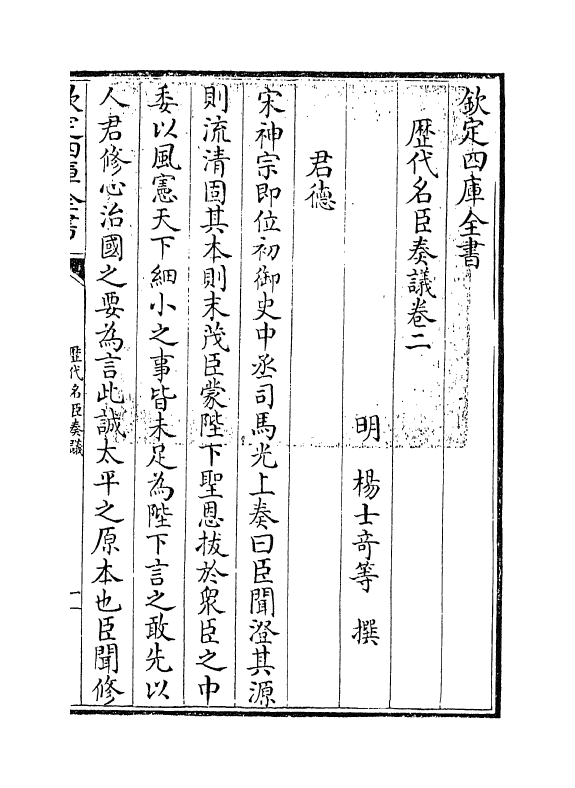 欽定四庫全書
歴代名臣奏議卷二
明　楊士奇等　撰
君德
宋神宗即位初御史中丞司馬光上奏曰臣聞澄其源
則流清固其本則末茂臣蒙陛下聖恩拔於衆臣之中
委以風憲天下細小之事皆未足為陛下言之敢先以
人君修心治國之要為言此誠太平之原本也臣聞修
欽定四庫全書
歴代名臣奏議